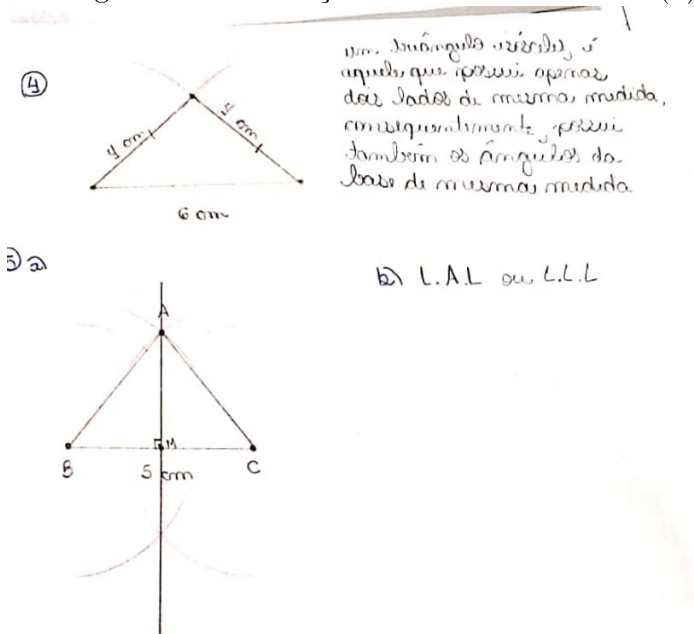 4
um triângulo isósceles, é
aquele que possui apenas
dois lados de mesma medida,
consequentemente, possui
também os ângulos da
base de mesma medida
4 cm
4 cm
6 cm
5 a)
b) L.A.L ou L.L.L
A
M
B
5 cm
C